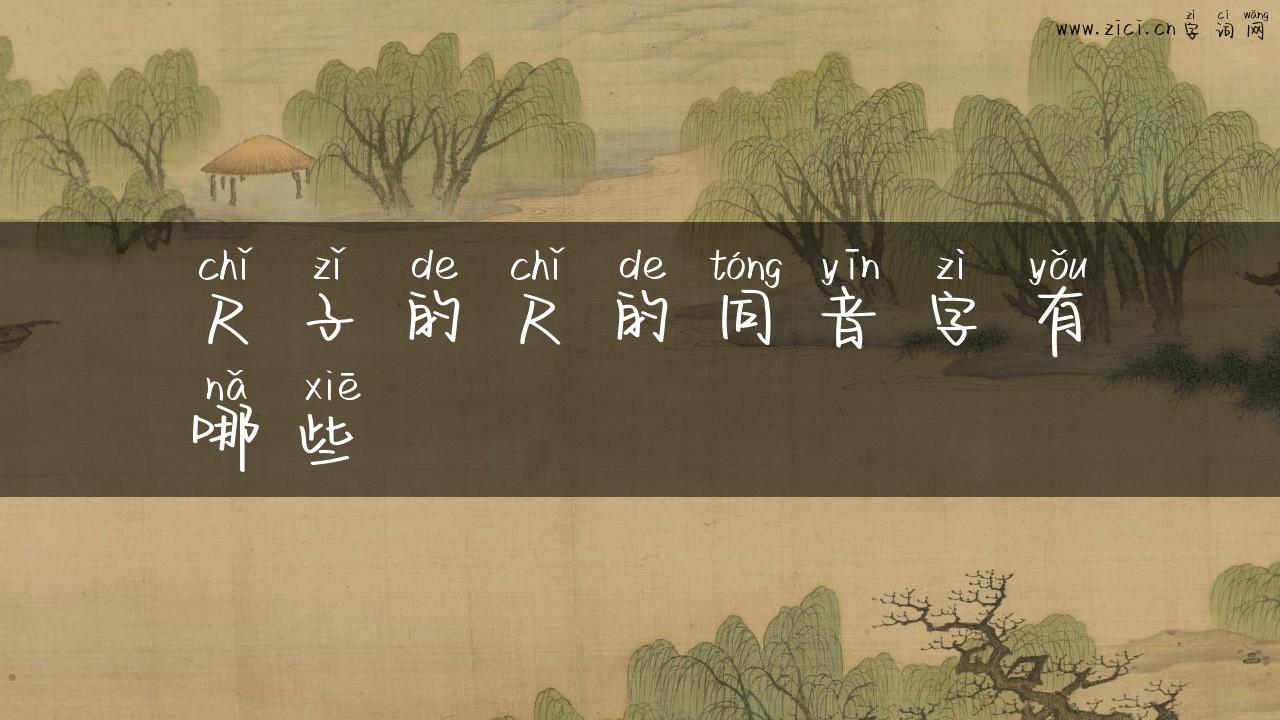 zì cí wǎng
www.zici.cn字词网
chǐ zǐ de chǐ de tóng yīn zì yǒu
尺子的尺的同音字有
nǎ xiē
哪些